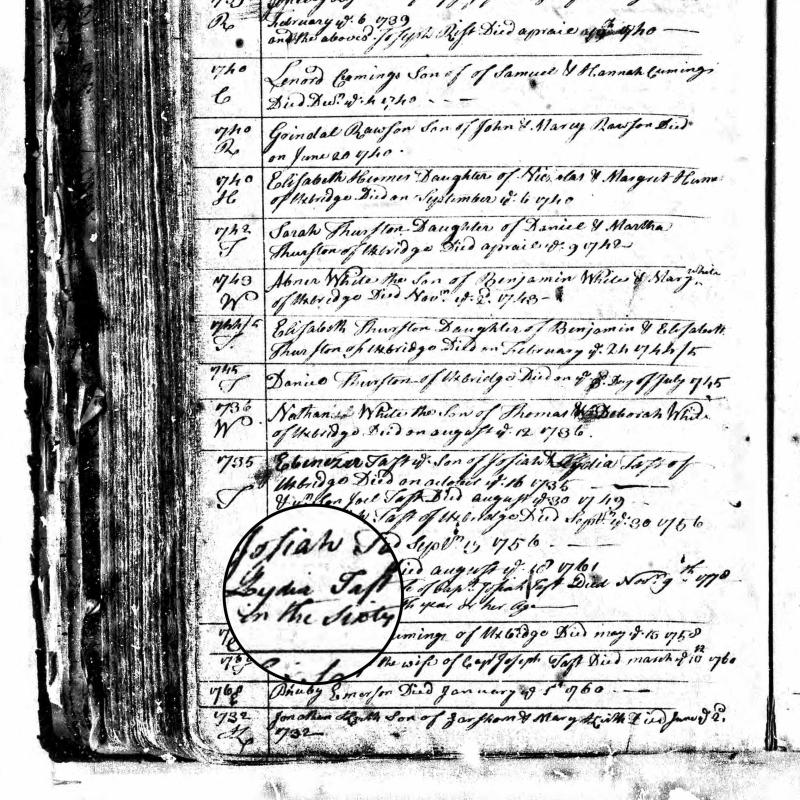 February ye 6 1739
and the aboved Joseph Rist Died apraiel 1740
1740 Lenord Comings Son of of Samuel & Hannah Cumings
C Died Decr ye 4 1740
1740 Grindal Rawson Son of John & Marcy Rawson Died
R on June 20 1740
1740 Elisabeth Daughter of Nicolas & Margret
H of Uxbridge Died on September ye 6 1740
1742 Sarah Thurston Daughter of Daniel & Martha
T Thurston of Uxbridge Died apraiel ye 9 1742
1743 Abner White the Son of Benjamin White & Mary White
W of Uxbridge Died Novr ye 2d 1743
1744/5 Elisabeth Thurston Daughter of Benjamin & Elisabeth
T Thurston of Uxbridge Died on February ye 24 1744/5
1745 Daniel Thurston of Uxbridge Died on ye 8 Day of July 1745
T
1736 Nathan White the Son of Thomas & Deborah White
W of Uxbridge Died on august ye 12 1736
1735 Ebenezer Taft ye Son of Josiah & Lydia Taft of
Uxbridge Died on october ye 16 1735
T Son Joel Taft Died august ye 30 1749
Taft of Uxbridge Died Septr ye 30 1756
Josiah Septr 1756
Died august ye 1761
Lydia Taft of Capt Josiah Taft Died Novr 9th 1778
in the sixty year of her age
Cumings of Uxbridge Died may ye 13 1758
the wife of Capt Joseph Taft Died march ye 1760
Rhuby Emerson Died January ye 5 1760
1732 Jonathan Keith Son of & Mary Keith Died June ye 2d
K 1732